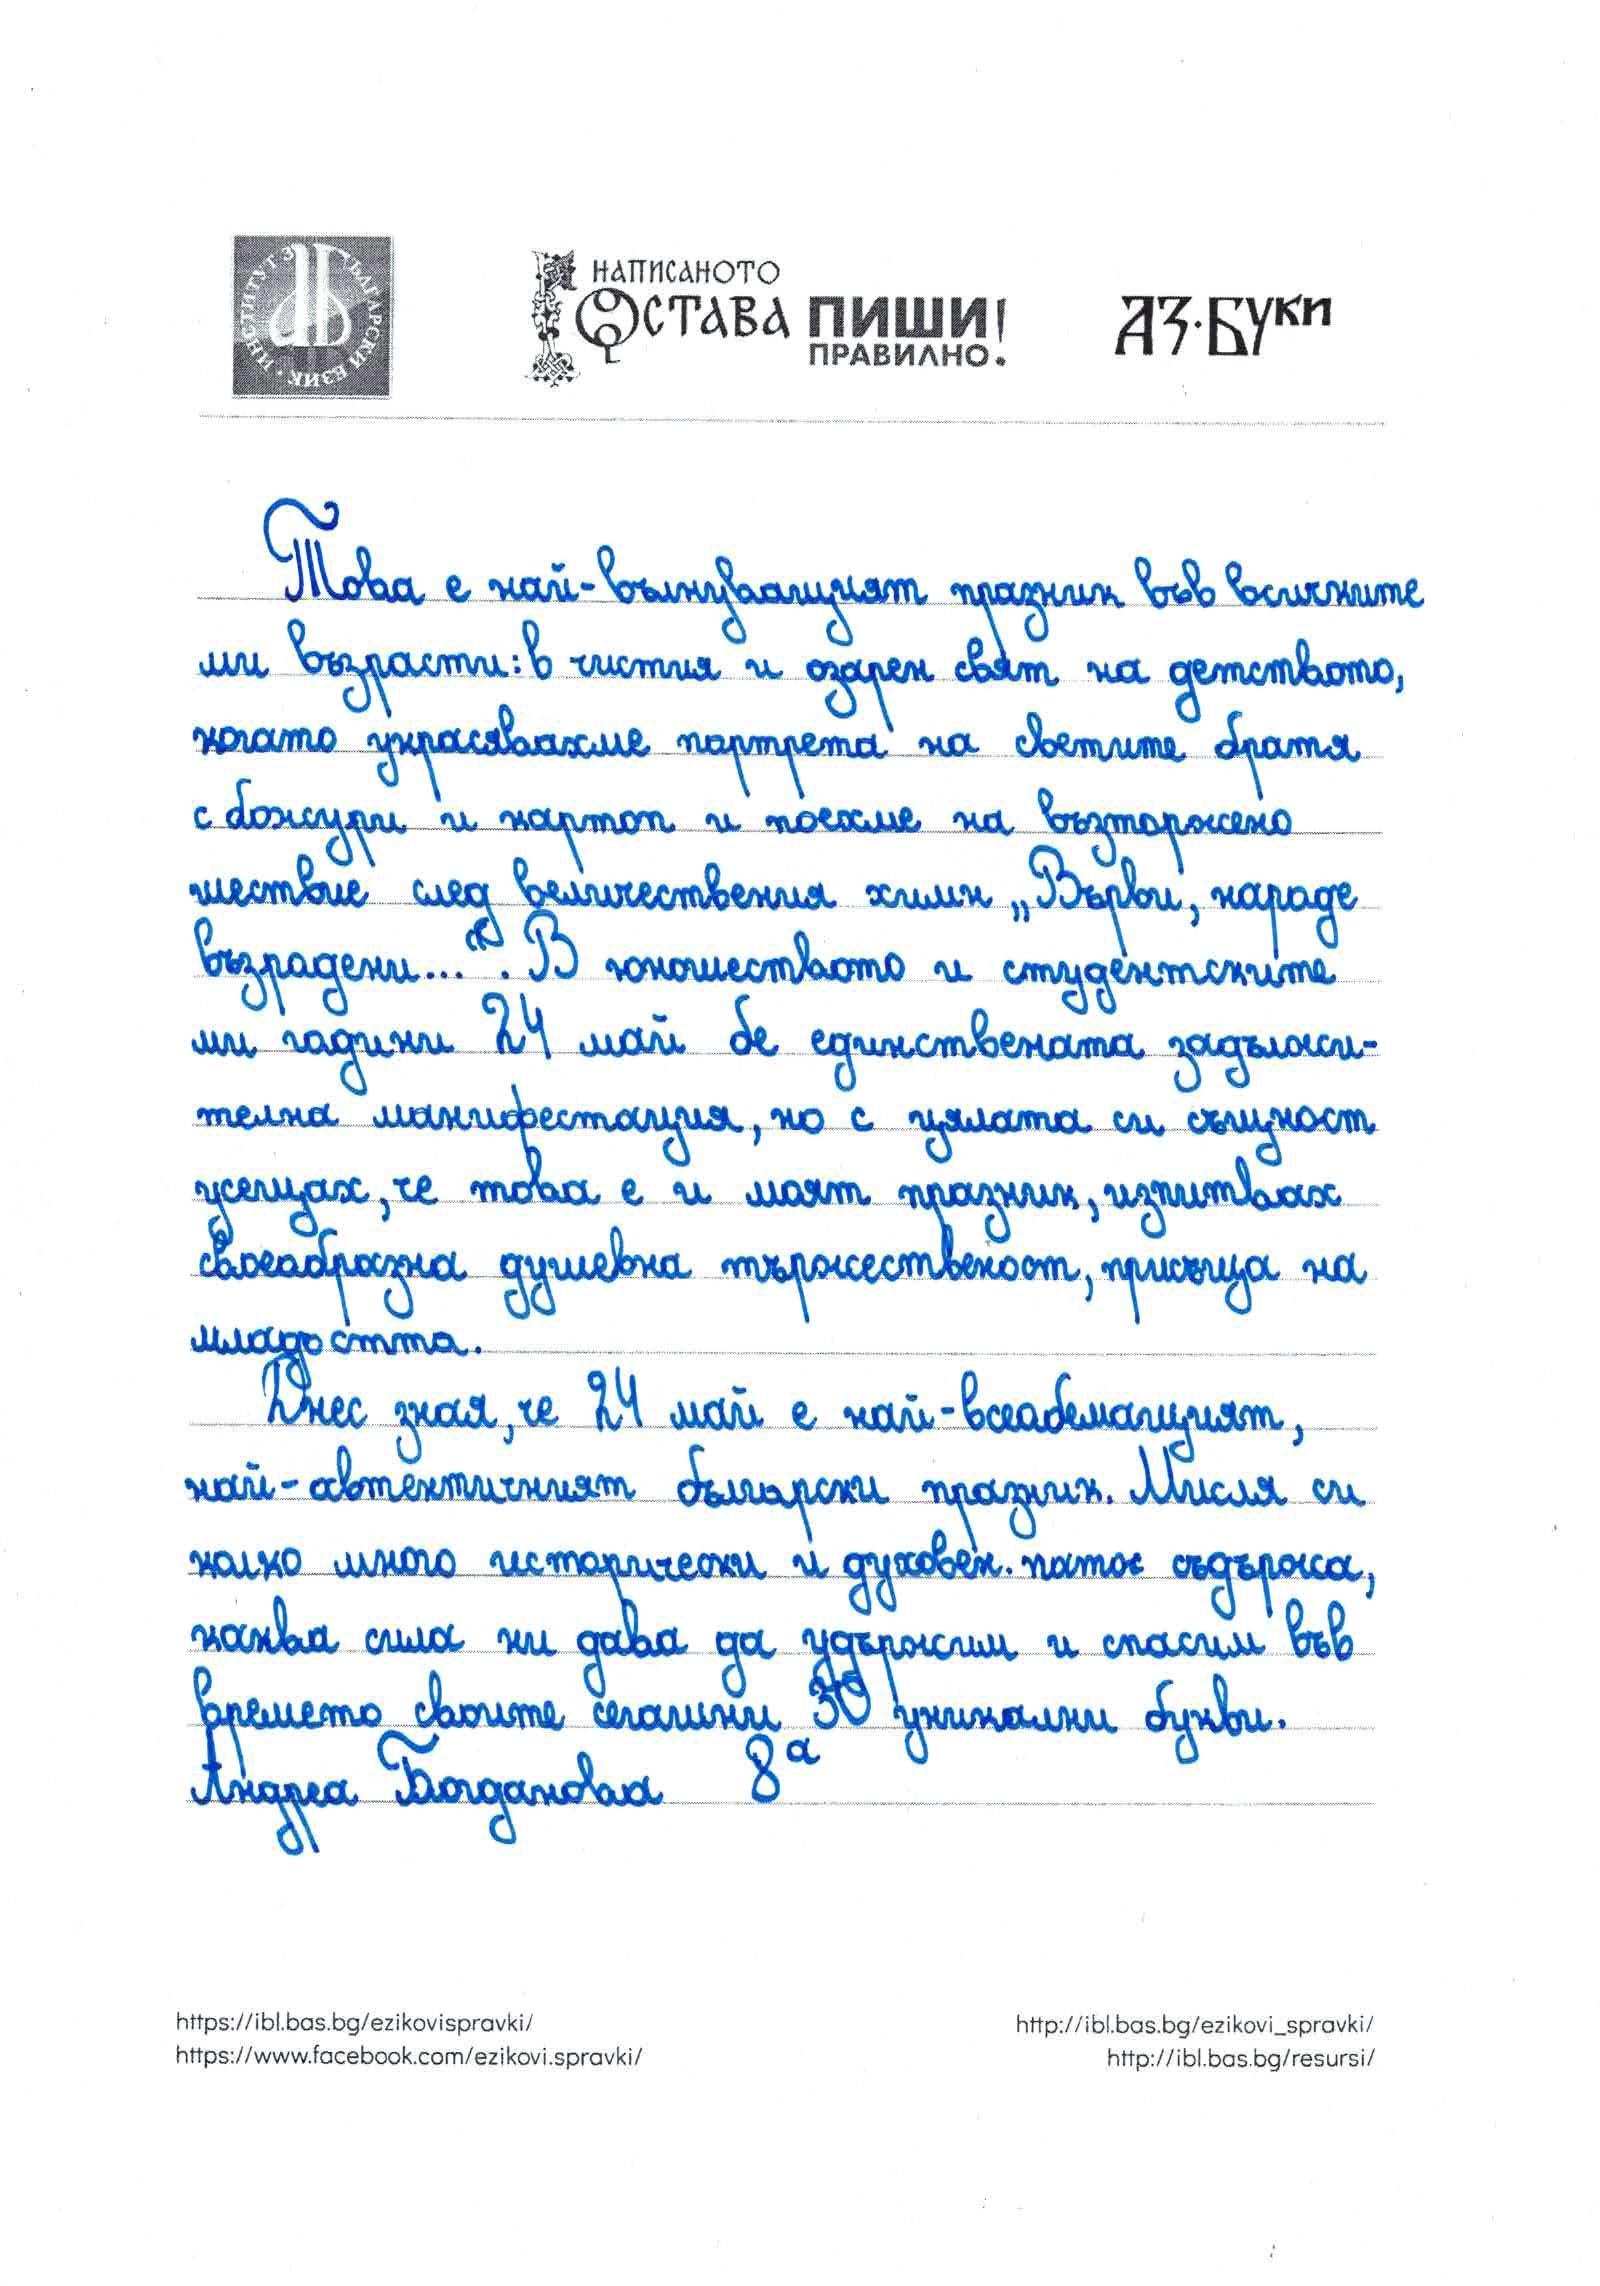 ИНСТИТУТ ЗА БЪЛГАРСКИ ЕЗИК
НАПИСАНОТО
ОСТАВА ПИШИ!
ПРАВИЛНО.
АЗ·БУКИ
Това е най-вълнуващият празник във всичките
ми възрасти: в чистия и озарен свят на детството,
когато украсявахме портрета на светите братя
с божури и картоп и поехме на възторжено
шествие след величествения химн „Върви, народе
възрадени...“. В юношеството и студентските
ми години 24 май бе единствената задължи-
телна манифестация, но с цялата си същност
усещах, че това е и моят празник, изпитвах
своеобразна душевна тържественост, присъща на
младостта.
Днес зная, че 24 май е най-всеобемащият,
най-автентичният български празник. Мисля си
колко много исторически и духовен патос съдържа,
каква сила ни дава да удържим и спасим във
времето своите сегашни 30 уникални букви.
Андреа Богданова 8а
https://ibl.bas.bg/ezikovispravki/ http://ibl.bas.bg/ezikovi_spravki/
https://www.facebook.com/ezikovi.spravki/ http://ibl.bas.bg/resursi/